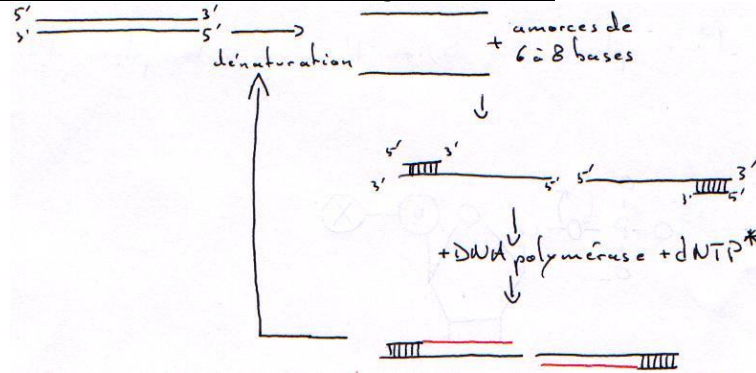 5' 3'
3' 5'
dénaturation
+ amorces de
6 à 8 bases
5' 3'
3' 5'
5' 3'
3' 5'
+DNA polymérase + dNTP*